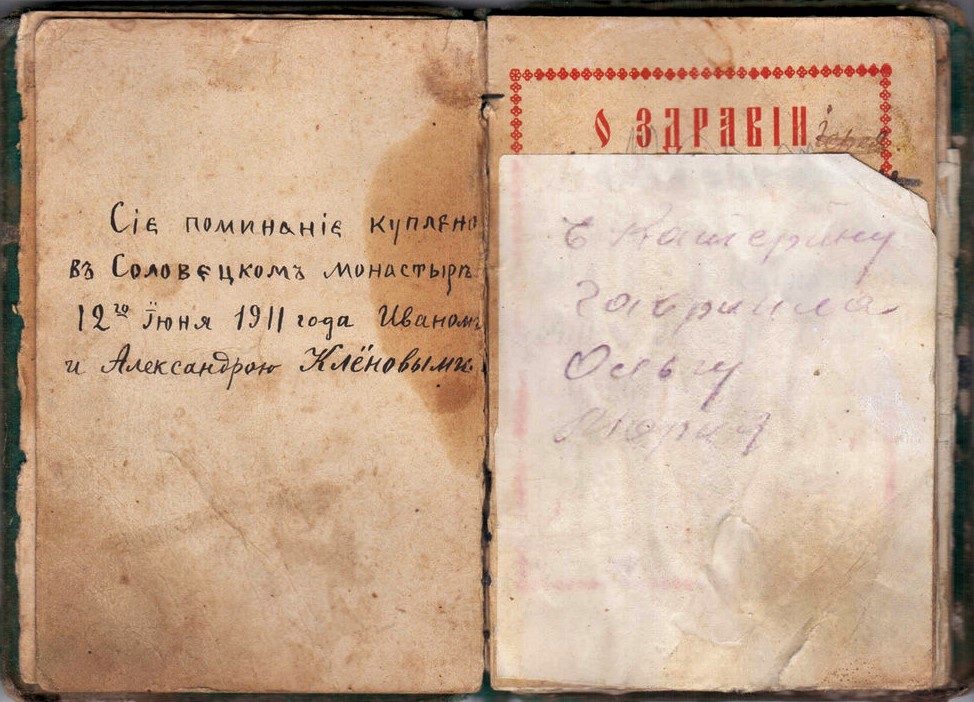 Сіе поминаніе куплено
въ Соловецкомъ монастырѣ
12го їюня 1911 года Иваномъ
и Александрою Клёновыми.
О ЗДРАВІИ
Екатерину
Гавриила
Ольгу